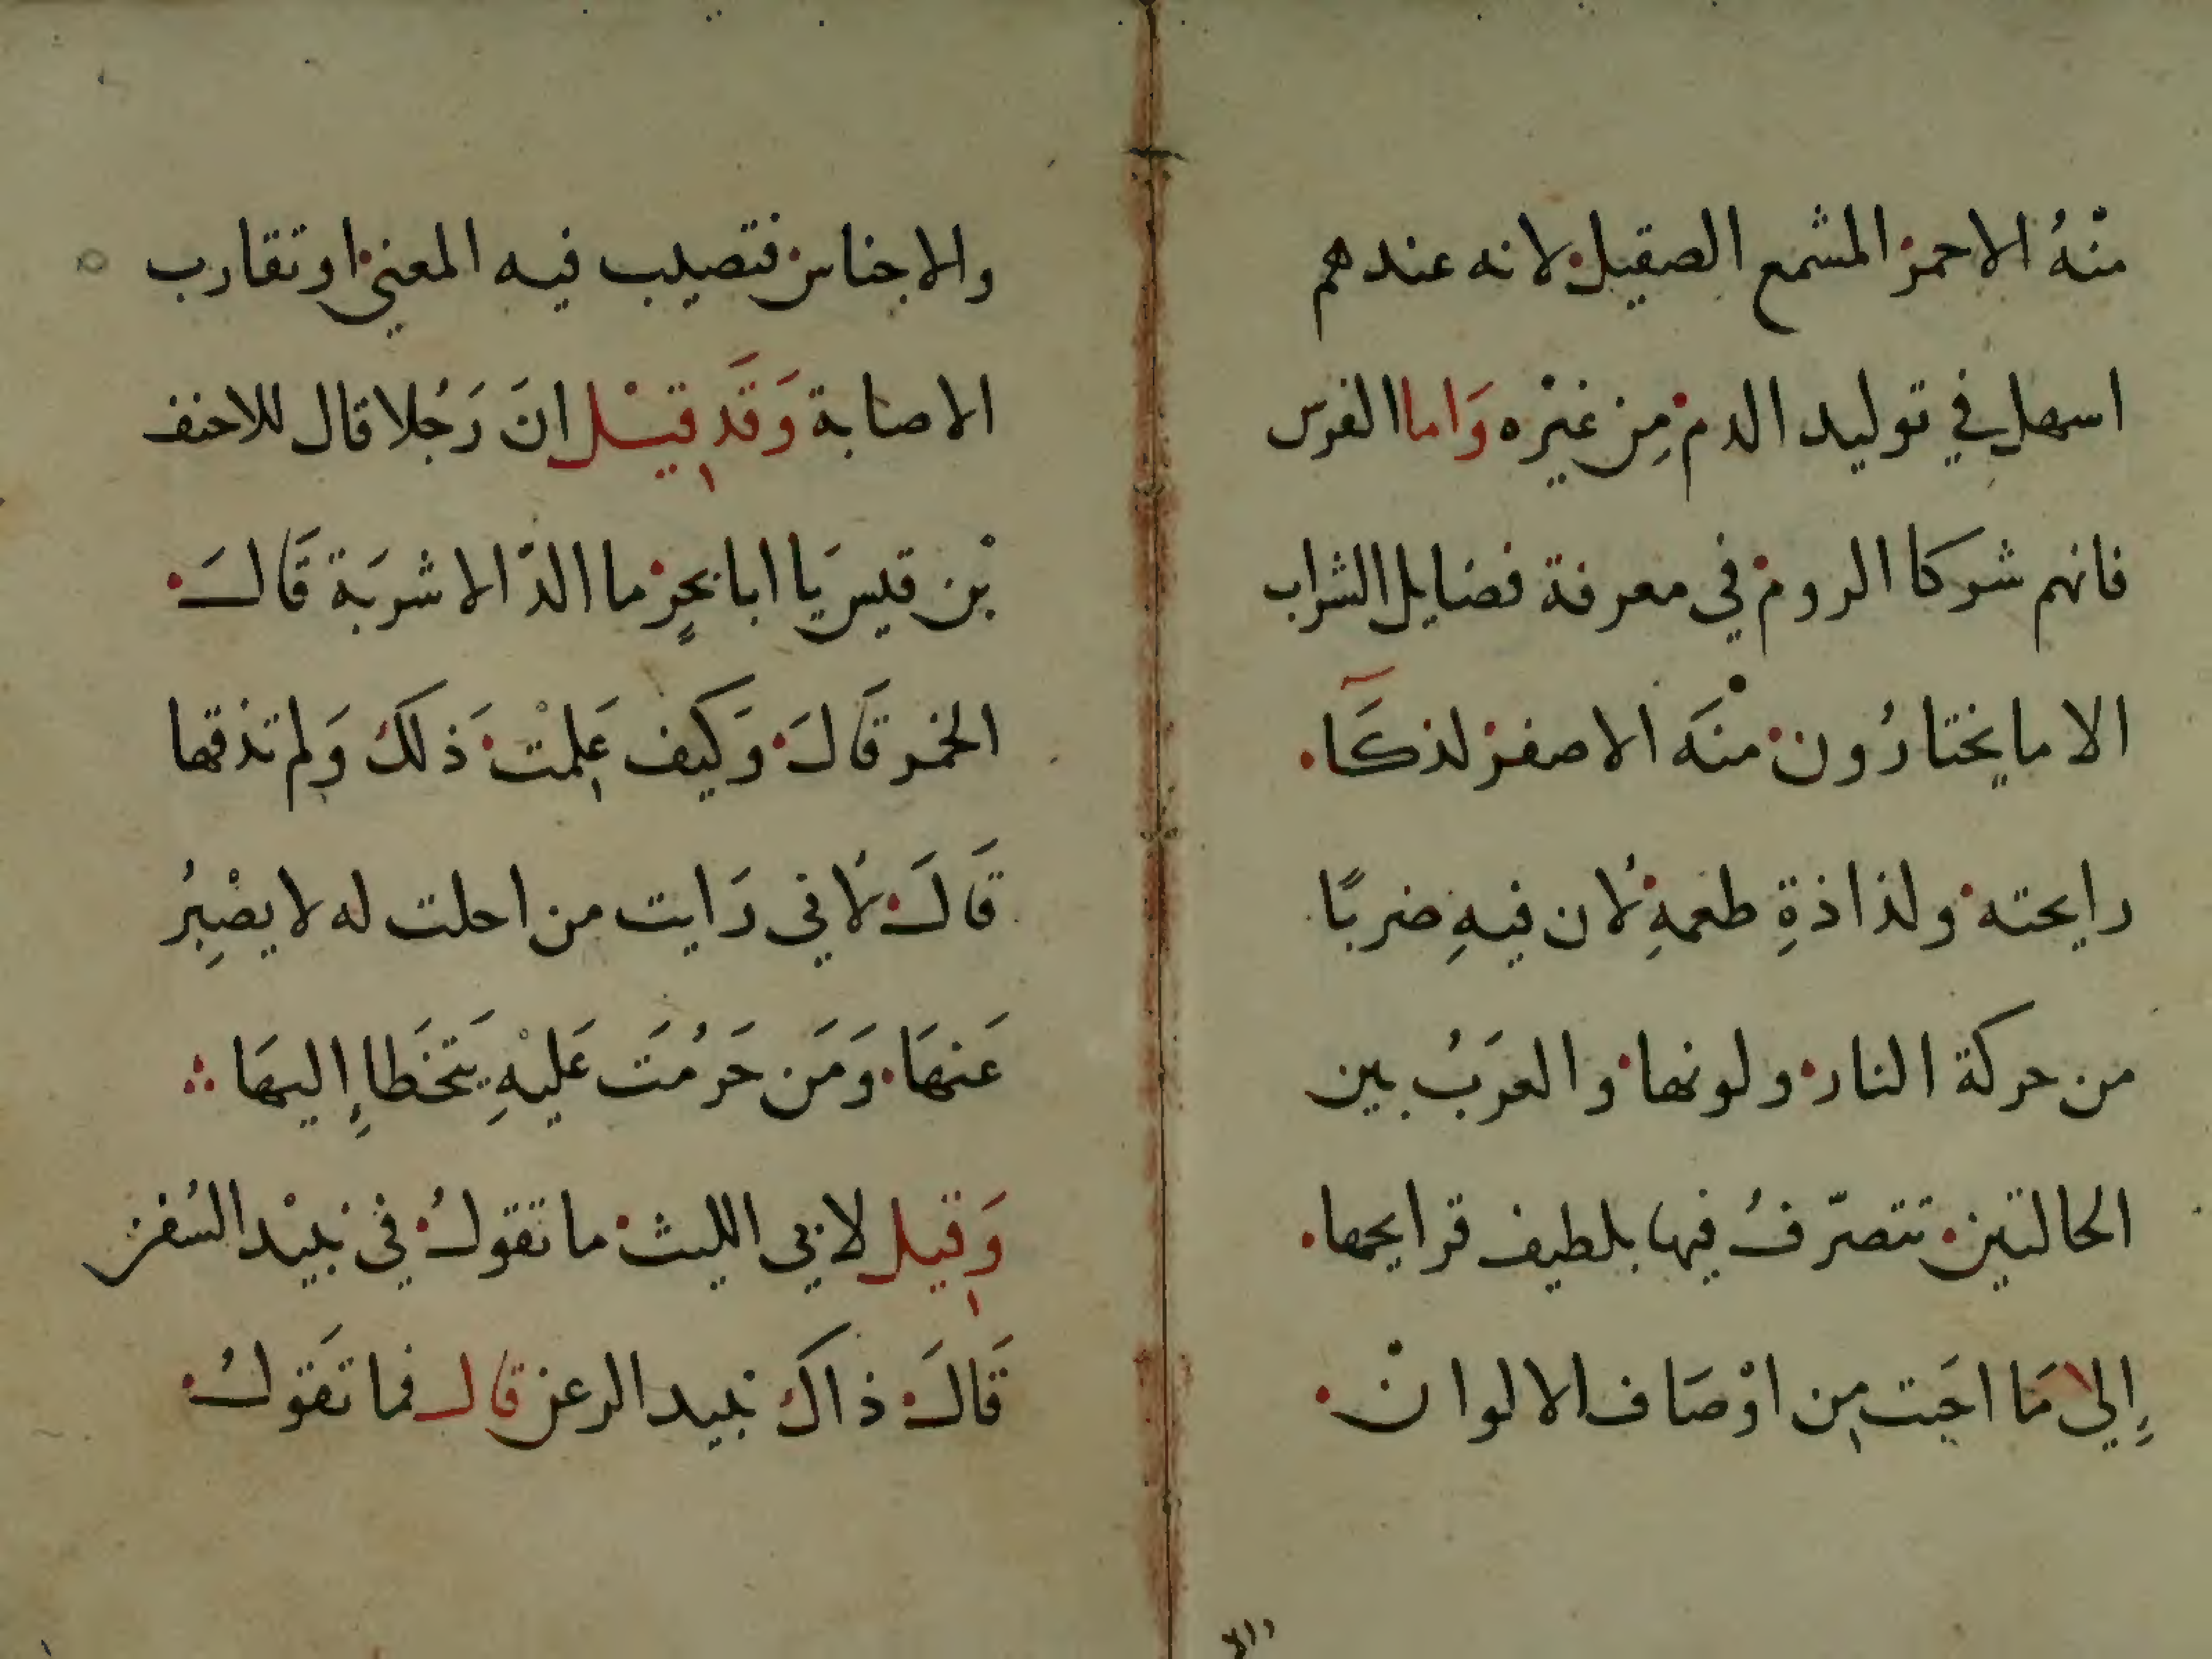 منْهُ الاحمر المشمع الصقيل لانه عندهم
اسهل في توليد الدم مِن غيْره وَاما الفرس
فانهم شركا الروم في معرفة فضايل الشراب
الا ما يختارُون منْه الاصفر لذكَا
رايحته ولذاذةِ طعمهِ لان فيهِ ضربًا
من حركة النار ولونها والعرَبُ بين
الحالتين تتصرّفُ فيها بلطيف قرايحها
إِلى مَا احَبت مِن اوْصَاف الالوان
والاجناس فتصيب فيه المعني او تقارب
الاصابة وَقَد قيْل انَ رَجُلا قال للاحنف
بْن قيس يَا ابا بحرٍ ما الذّ الاشربَة قَالَ
الخمر قَالَ وَكيف عَلمْتَ ذَلك وَلم تذقها
قَالَ لاني رَايت من احلت له لا يصْبِرُ
عَنهَا وَمَن حَرُمَت عَليْهِ يَتخَطا إِليهَا
وَقيل لابي الليث ما تقولُ في نبيْد السُفر
قَالَ ذاك نبيد الرعن قال فما تَقولُ